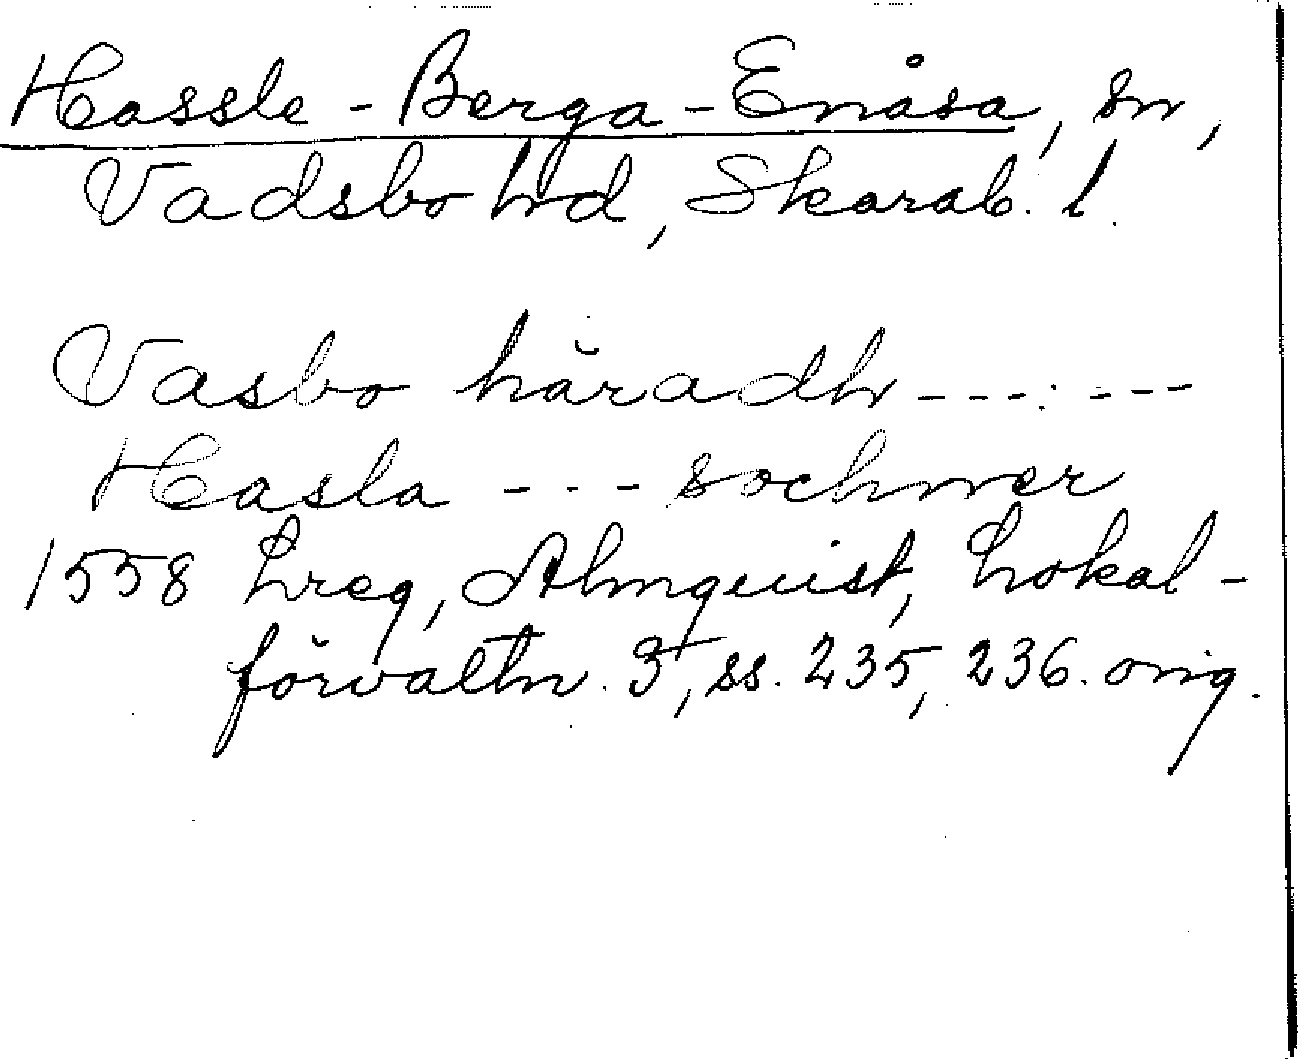 Hassle-Berga-Enåsa, sn,
Vadsbo hd, Skarab. l.
Vasbo häradh --- ---
Hasla --- sochner
1558 Lreg, Almquist, Lokal-
förvaltn. 3, ss. 235, 236. orig.